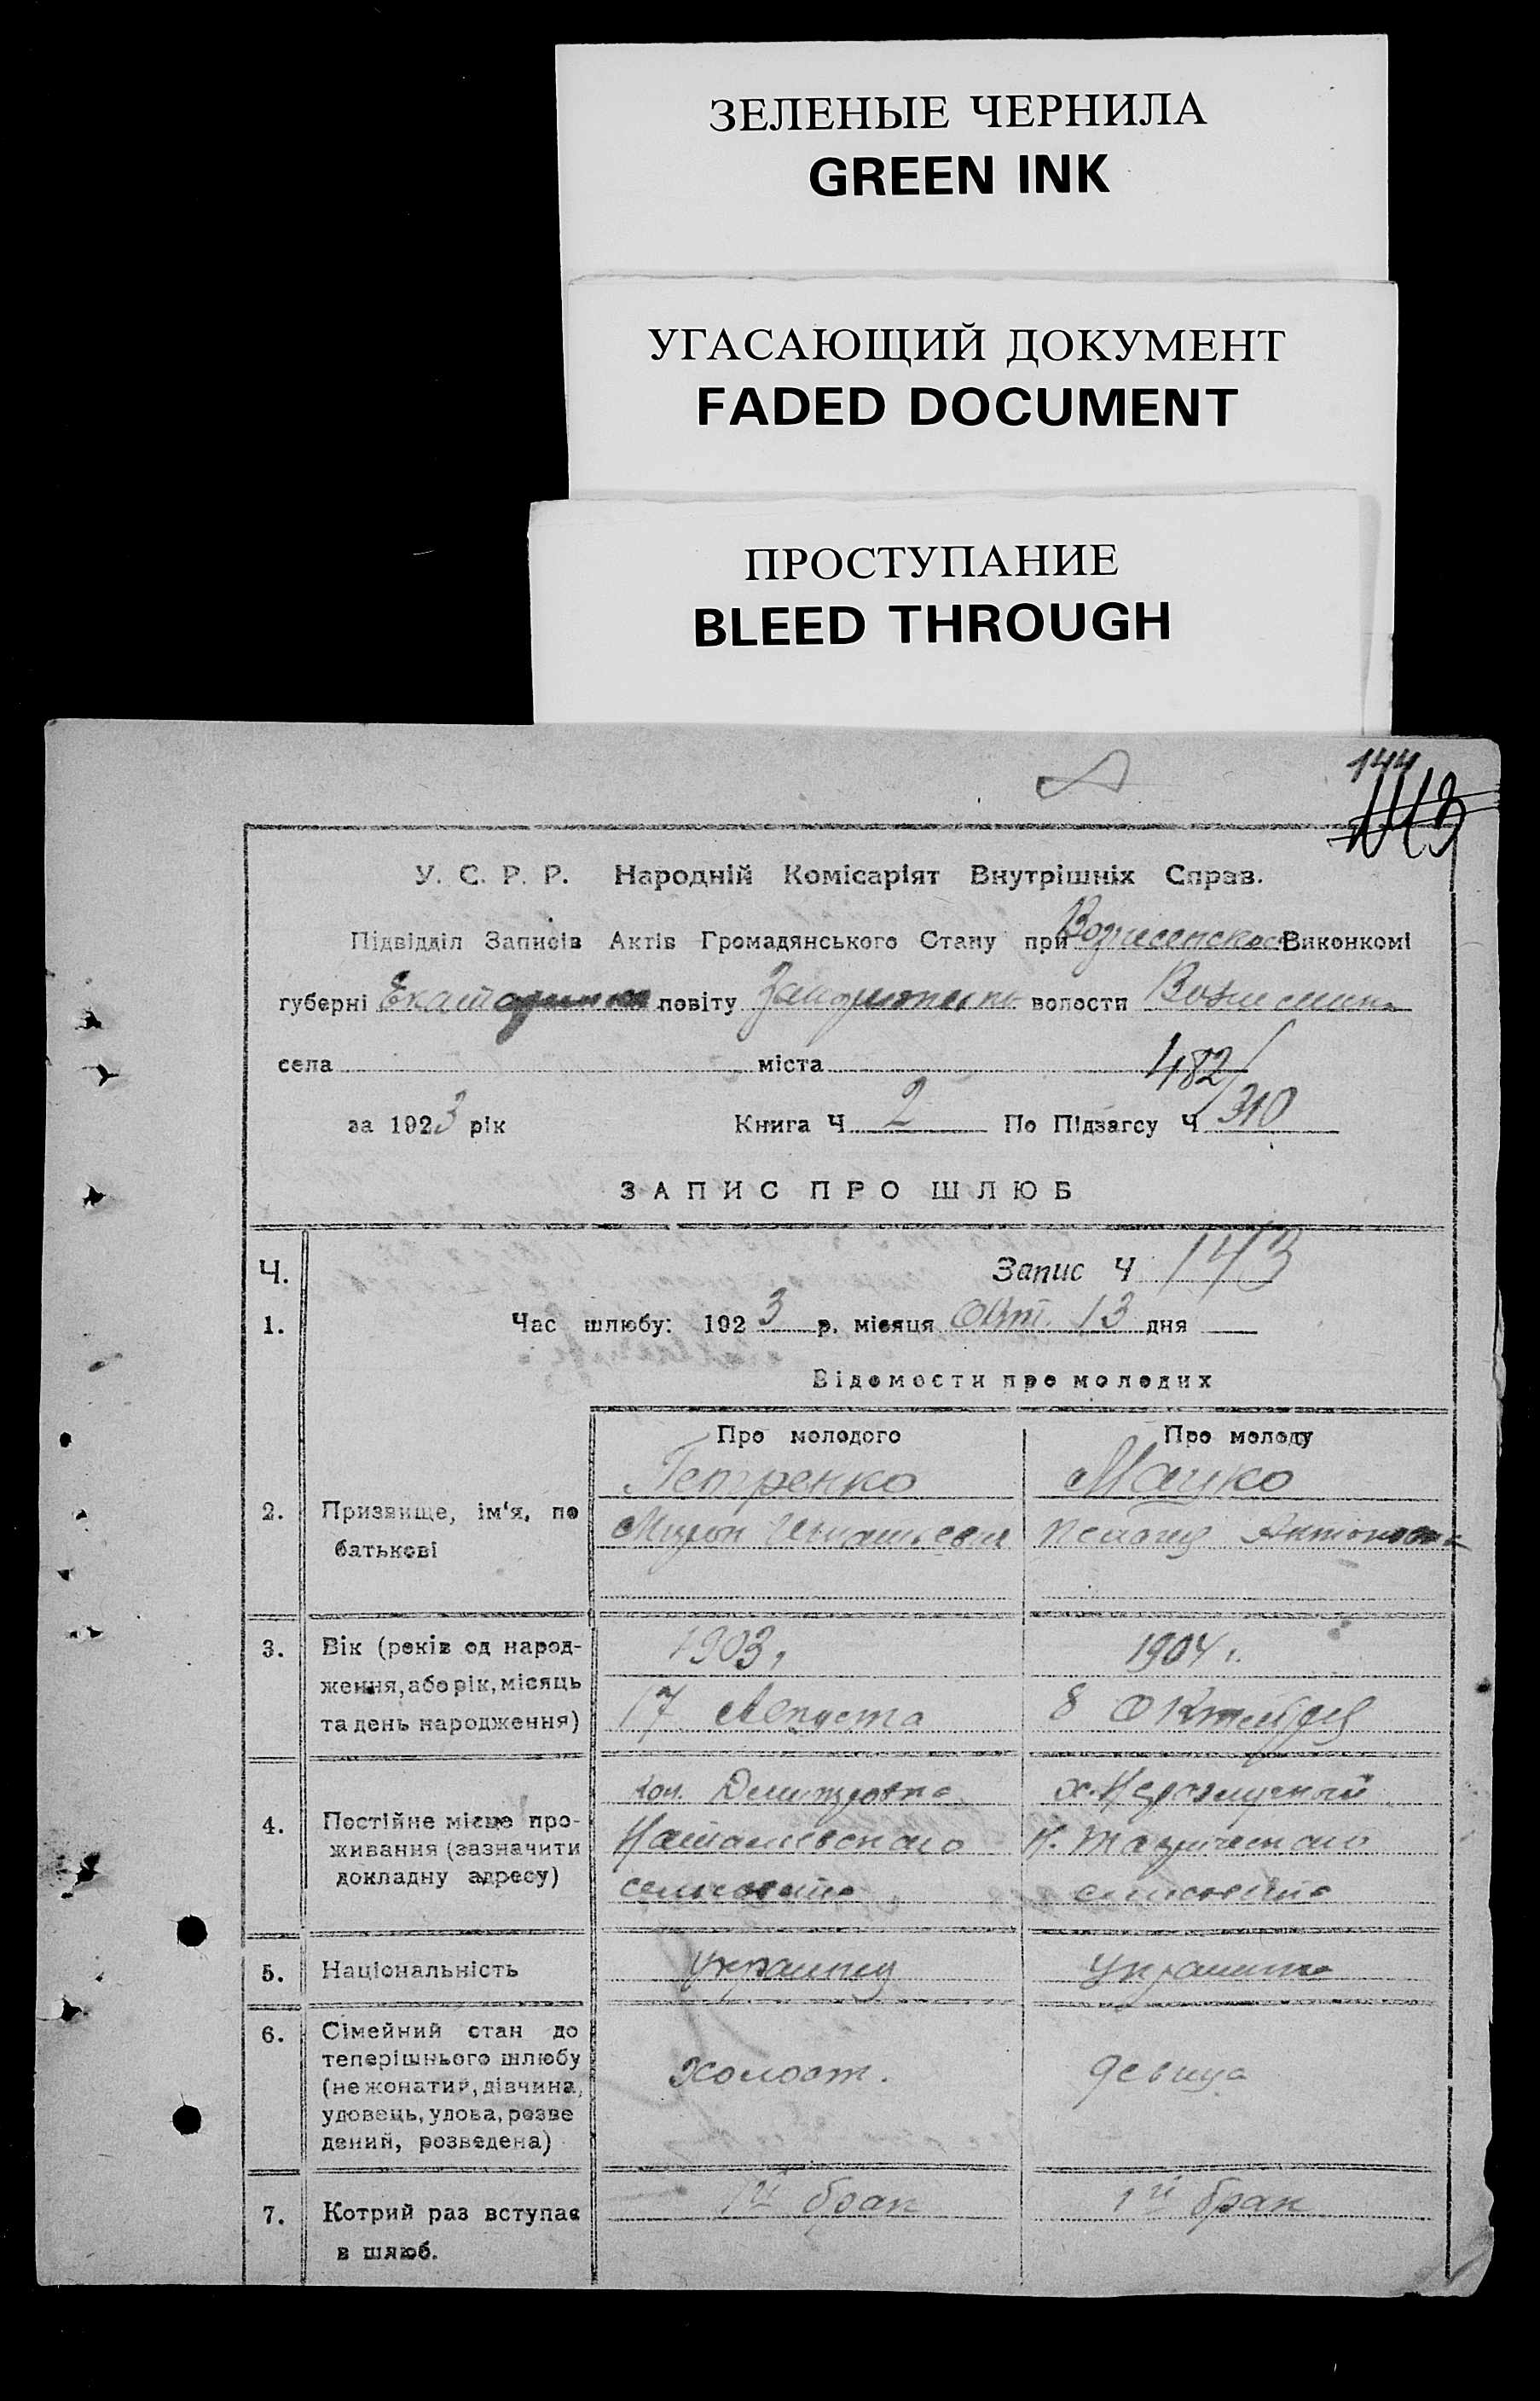 ЗЕЛЕНЫЕ ЧЕРНИЛА
GREEN INK
УГАСАЮЩИЙ ДОКУМЕНТ
FADED DOCUMENT
ПРОСТУПАНИЕ
BLEED THROUGH
144
У. С. Р. Р. Народній Комісаріят Внутрішніх Справ.
Підвідділ Записів Актів Громадянського Стану при Виконкомі
губерні повіту волости
села міста 482/
за 1923 рік Книга Ч 2 По Підзагсу Ч 310
ЗАПИС ПРО ШЛЮБ
Ч. Запис Ч 143
1. Час шлюбу: 1923 р. місяця Окт. 13 дня
Відомости про молодих
Про молодого Про молоду
Петренко Мацко
2. Призвище, ім'я, по
батькові
1903, 1904 г.
3. Вік (років од народ-
ження, або рік, місяць
та день народження) 17 Августа 8 Октября
4. Постійне місце про-
живання (зазначити
докладну адресу)
сельсовета сельсовета
5. Національність украинец украинка
6. Сімейний стан до
теперішнього шлюбу
(не жонатий, дівчина,
удовець, удова, розве
дений, розведена)
холост. девица
7. Котрий раз вступає
в шлюб.
1й брак 1й брак